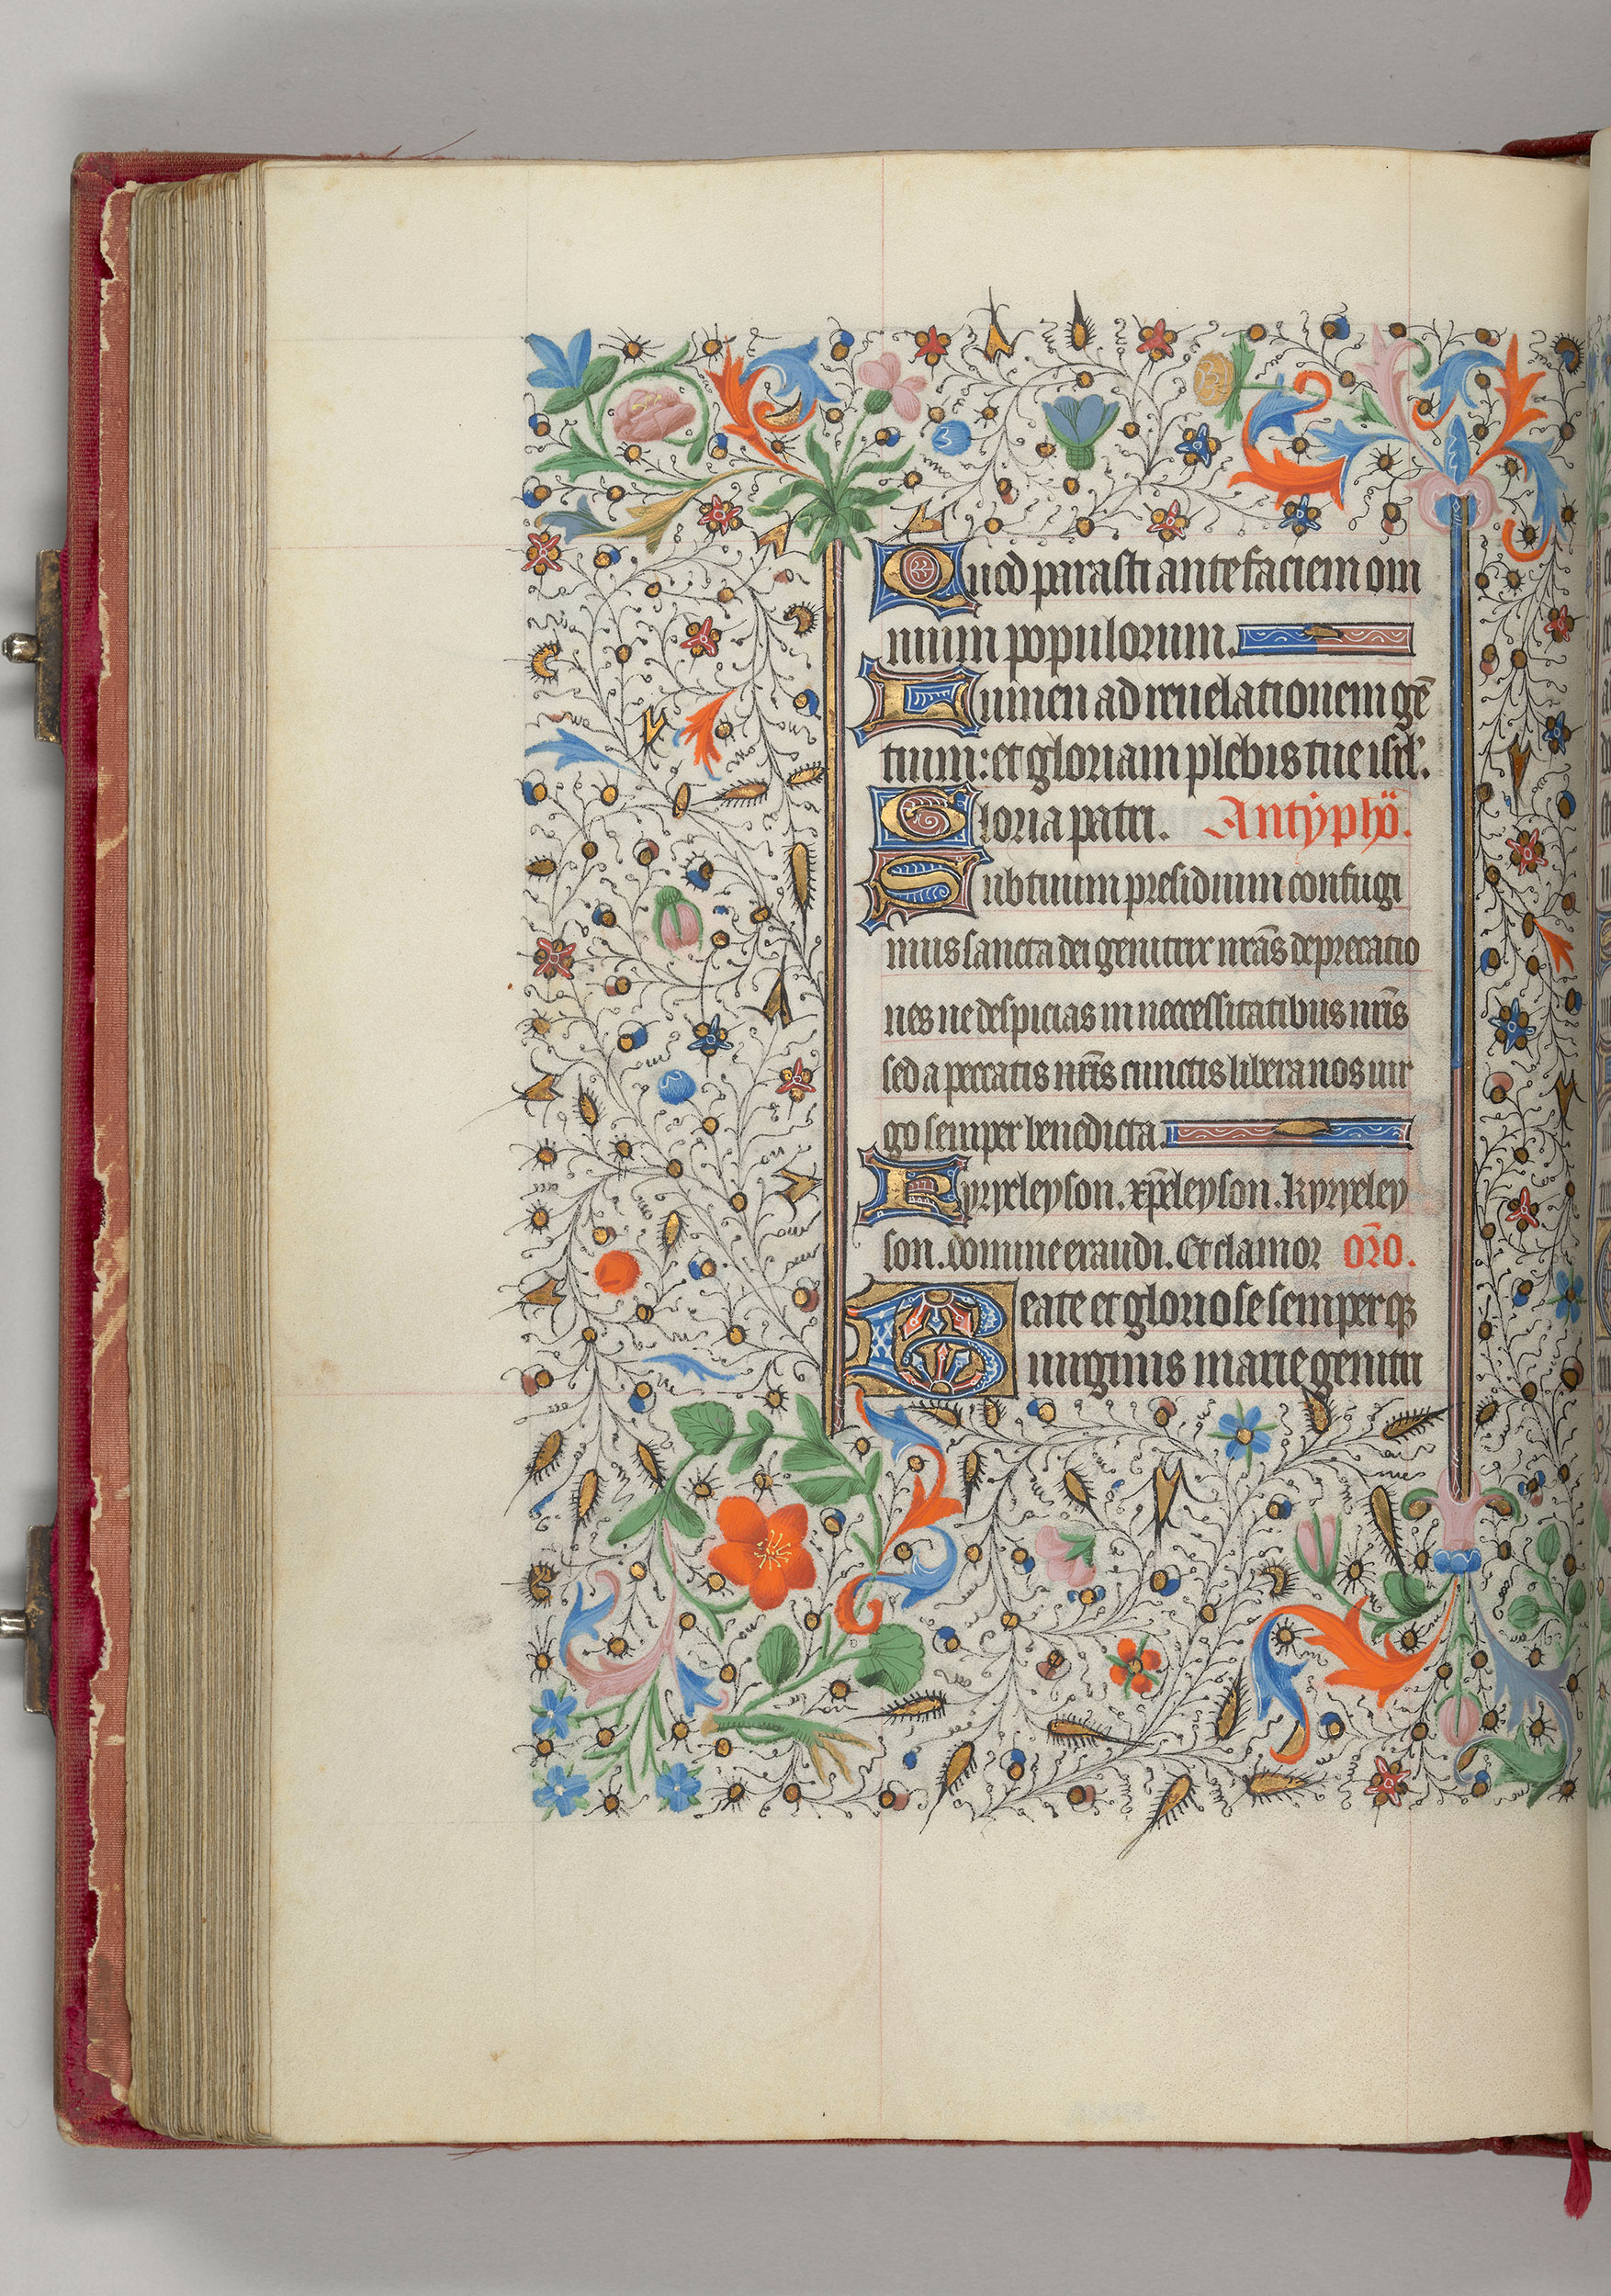 Quod parasti ante faciem om
nium populorum.
Lumen ad reuelationem gē
tium: et gloriam plebis tue isrł.
Gloria patri. Antyphō.
Sub tuum presidium confugi
mus sancta dei genitrix nrās deprecatio
nes ne despicias in neccessitatibus nrīs
sed a peccatis nrīs cunctis libera nos uir
go semper benedicta.
Kyrieleyson. xp̄eleyson. Kyrieley
son. Domine exaudi. Et clamor or̄o.
Beate et gloriose semperqꝫ
uirginis marie genitri